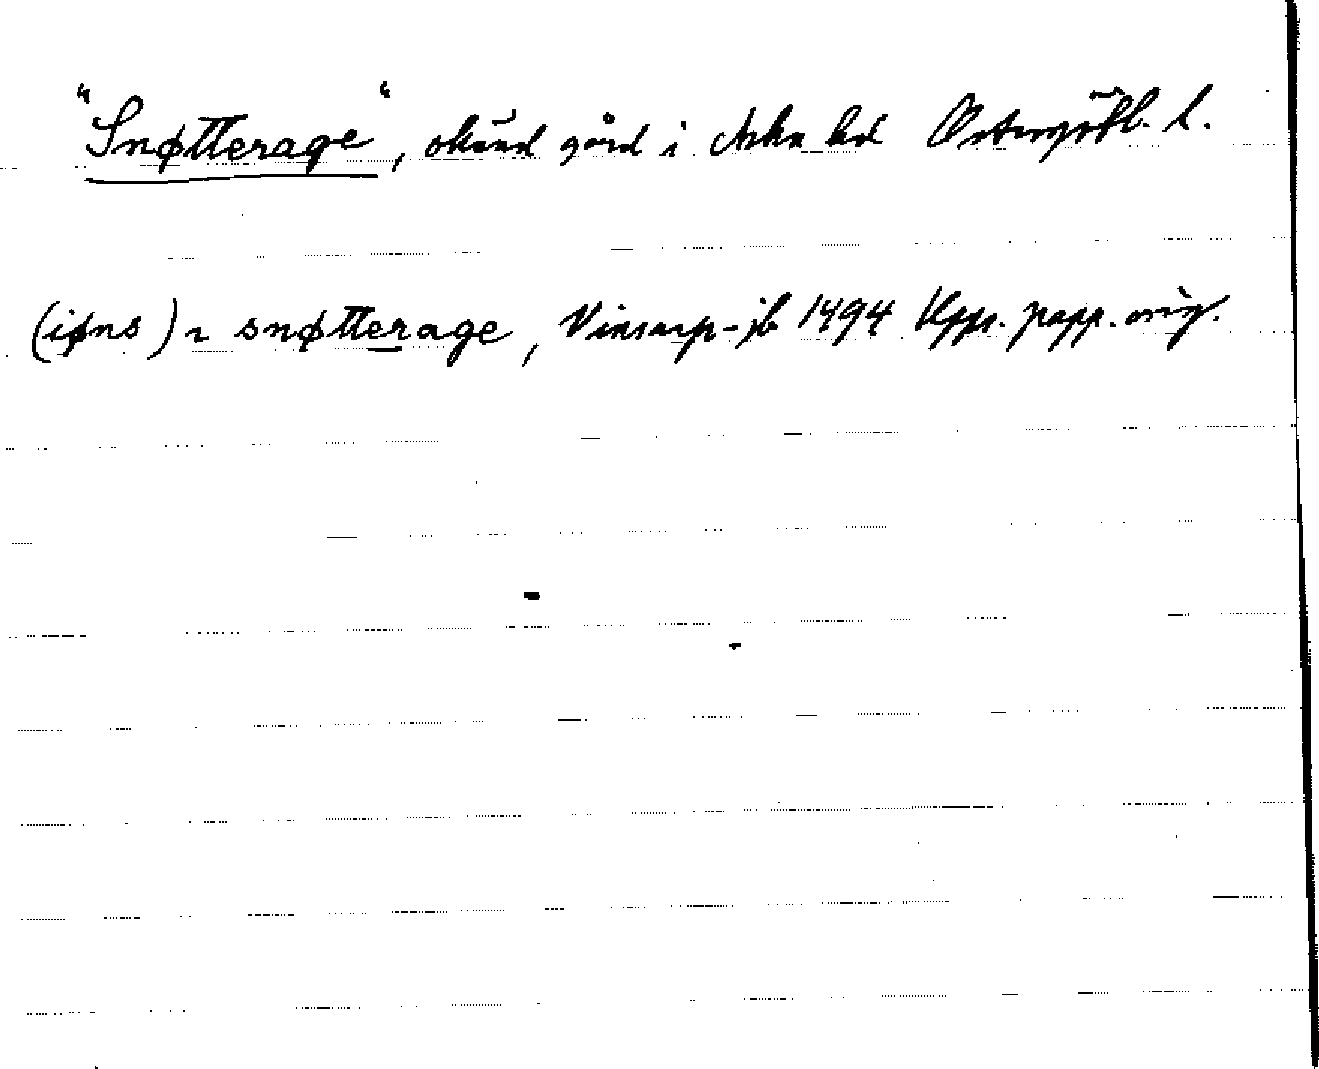 "Snøtterage", okänd gård i Aska hd Östergötl. l.
(iøns) ı snøtterage, Vinsarp-jb 1494 Upps. papp. orig.